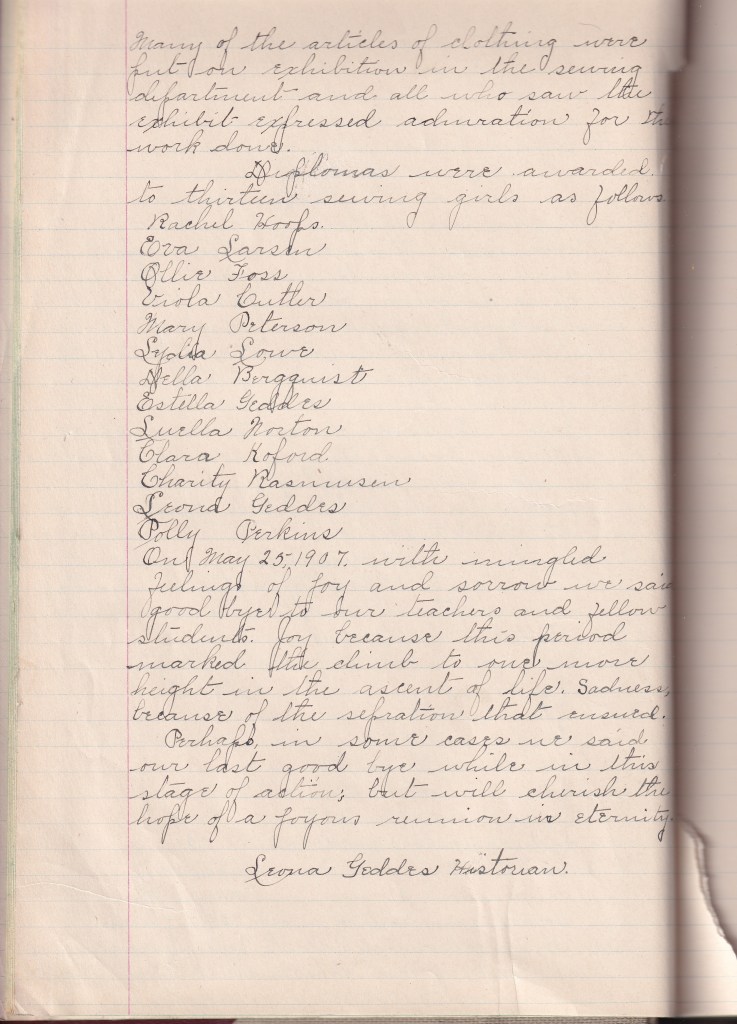 Many of the articles of clothing were
put on exhibition in the sewing
department and all who saw the
exhibit expressed admiration for the
work done.
Diplomas were awarded
to thirteen sewing girls as follows
Rachel Hoops.
Eva Larsen
Ollie Foss
Viola Cutler
Mary Peterson
Lydia Lowe
Della Bergquist
Estella Geddes
Luella Norton
Clara Koford
Charity Rasmusen
Leona Geddes
Polly Perkins
On May 25, 1907. with mingled
feelings of joy and sorrow we said
good bye to our teachers and fellow
students. Joy because this period
marked the climb to one more
height in the ascent of life. Sadness,
because of the sepration that ensued.
Perhaps, in some cases we said
our last good bye while in this
stage of action; but will cherish the
hope of a joyous reunion in eternity.
Leona Geddes Historian.